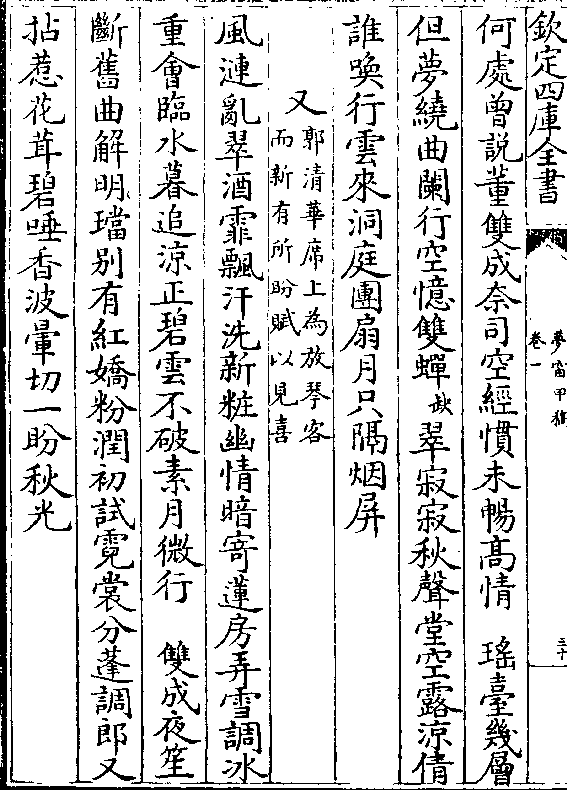 欽定四庫全書
夢窗甲稿
卷一
三十
何處曾說董雙成奈司空經慣未暢高情　瑤臺幾層
但夢繞曲闌行空憶雙蟬缺翠寂寂秋聲堂空露涼倩
誰喚行雲來洞庭團扇月只隔烟屏
又郭清華席上為放琴客而新有所盼賦以見喜
風漣亂翠酒霏飄汗洗新粧幽情暗寄蓮房弄雪調冰
重會臨水暮追涼正碧雲不破素月微行　雙成夜笙
斷舊曲解明璫别有紅嬌粉潤初試霓裳分蓬調郎又
拈惹花茸碧唾香波暈切一盼秋光